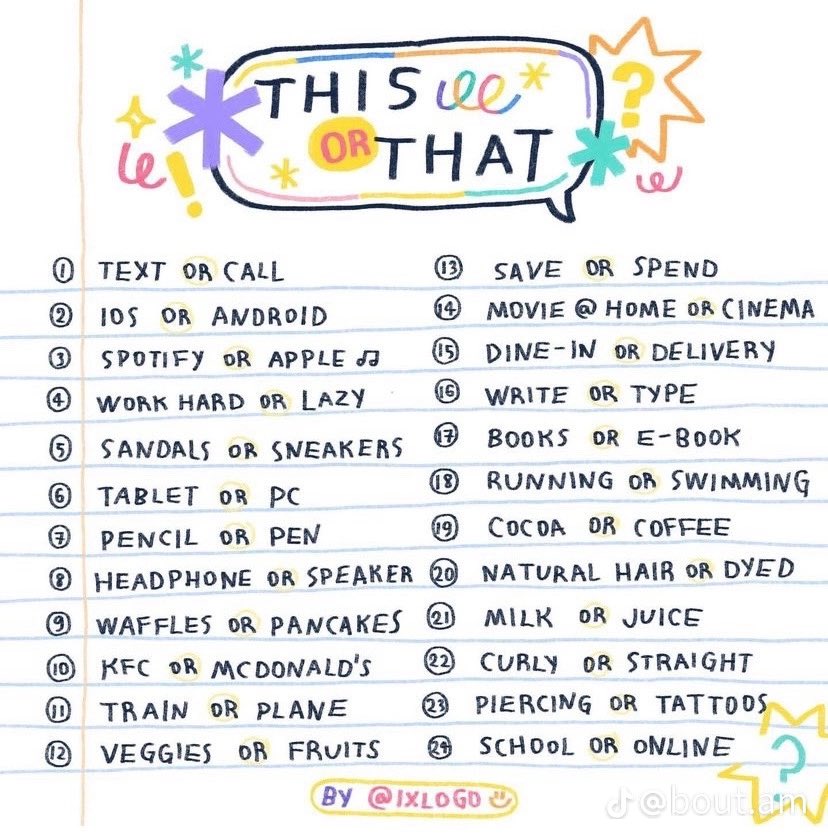 THIS
OR THAT
?
!
① TEXT OR CALL
② IOS OR ANDROID
③ SPOTIFY OR APPLE ♫
④ WORK HARD OR LAZY
⑤ SANDALS OR SNEAKERS
⑥ TABLET OR PC
⑦ PENCIL OR PEN
⑧ HEADPHONE OR SPEAKER
⑨ WAFFLES OR PANCAKES
⑩ KFC OR MCDONALD'S
⑪ TRAIN OR PLANE
⑫ VEGGIES OR FRUITS
⑬ SAVE OR SPEND
⑭ MOVIE @ HOME OR CINEMA
⑮ DINE-IN OR DELIVERY
⑯ WRITE OR TYPE
⑰ BOOKS OR E-BOOK
⑱ RUNNING OR SWIMMING
⑲ COCOA OR COFFEE
⑳ NATURAL HAIR OR DYED
㉑ MILK OR JUICE
㉒ CURLY OR STRAIGHT
㉓ PIERCING OR TATTOOS
㉔ SCHOOL OR ONLINE
?
BY @IXLOGO
@bout.am